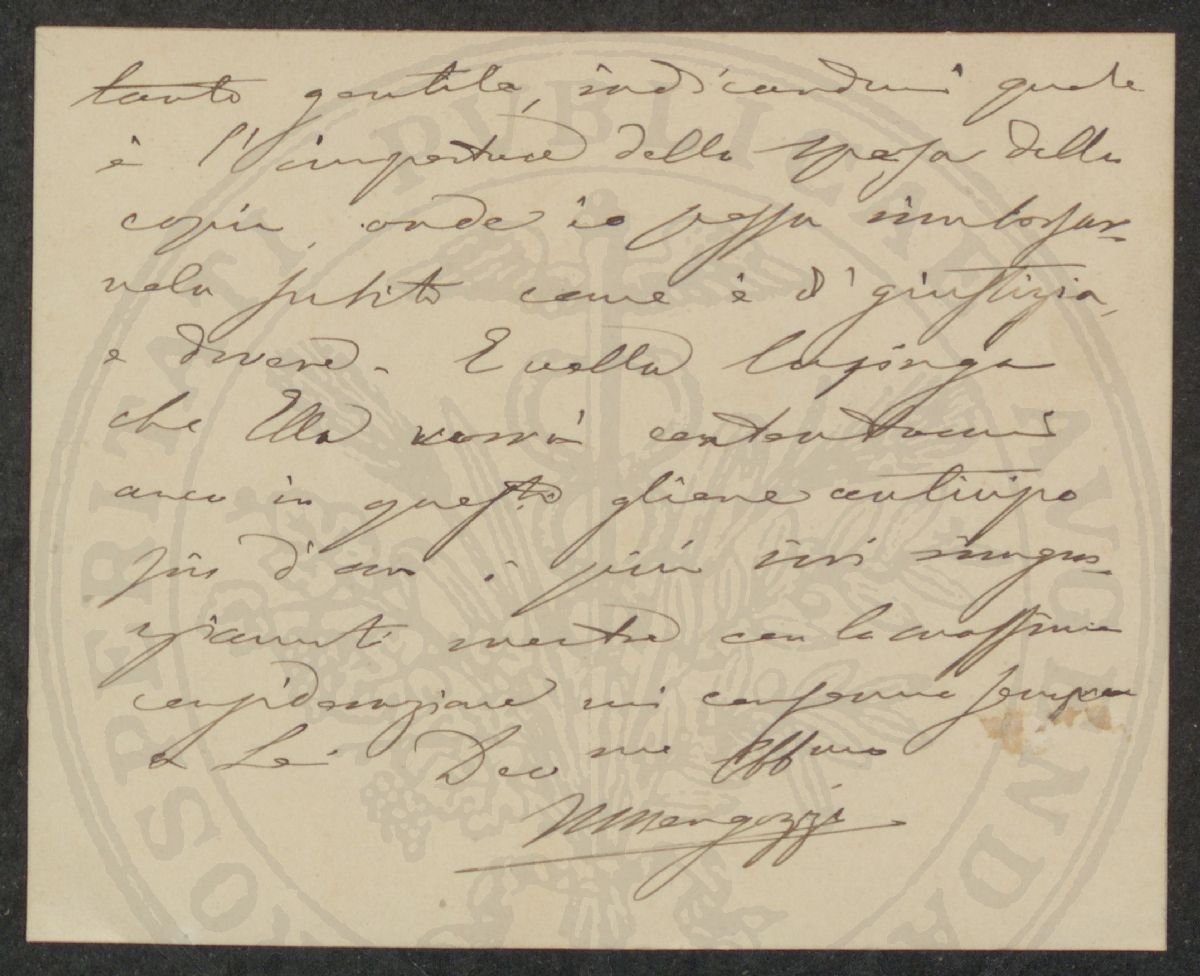 tanto gentile, indicandomi quale
è l'importare della spesa della
copia, onde io possa rimborsar-
nela subito come è d'giustizia,
e dovere. E nella lusinga
che Ella vorrà contentarmi
anco in questo gliene anticipo
fin d'ora i più vivi ringra-
ziamenti mentre con la massima
considerazione mi confermo sempre
a Lei Devmo Affmo
NMengozzi
PROSPERITATI PUBLICAE AUGENDAE